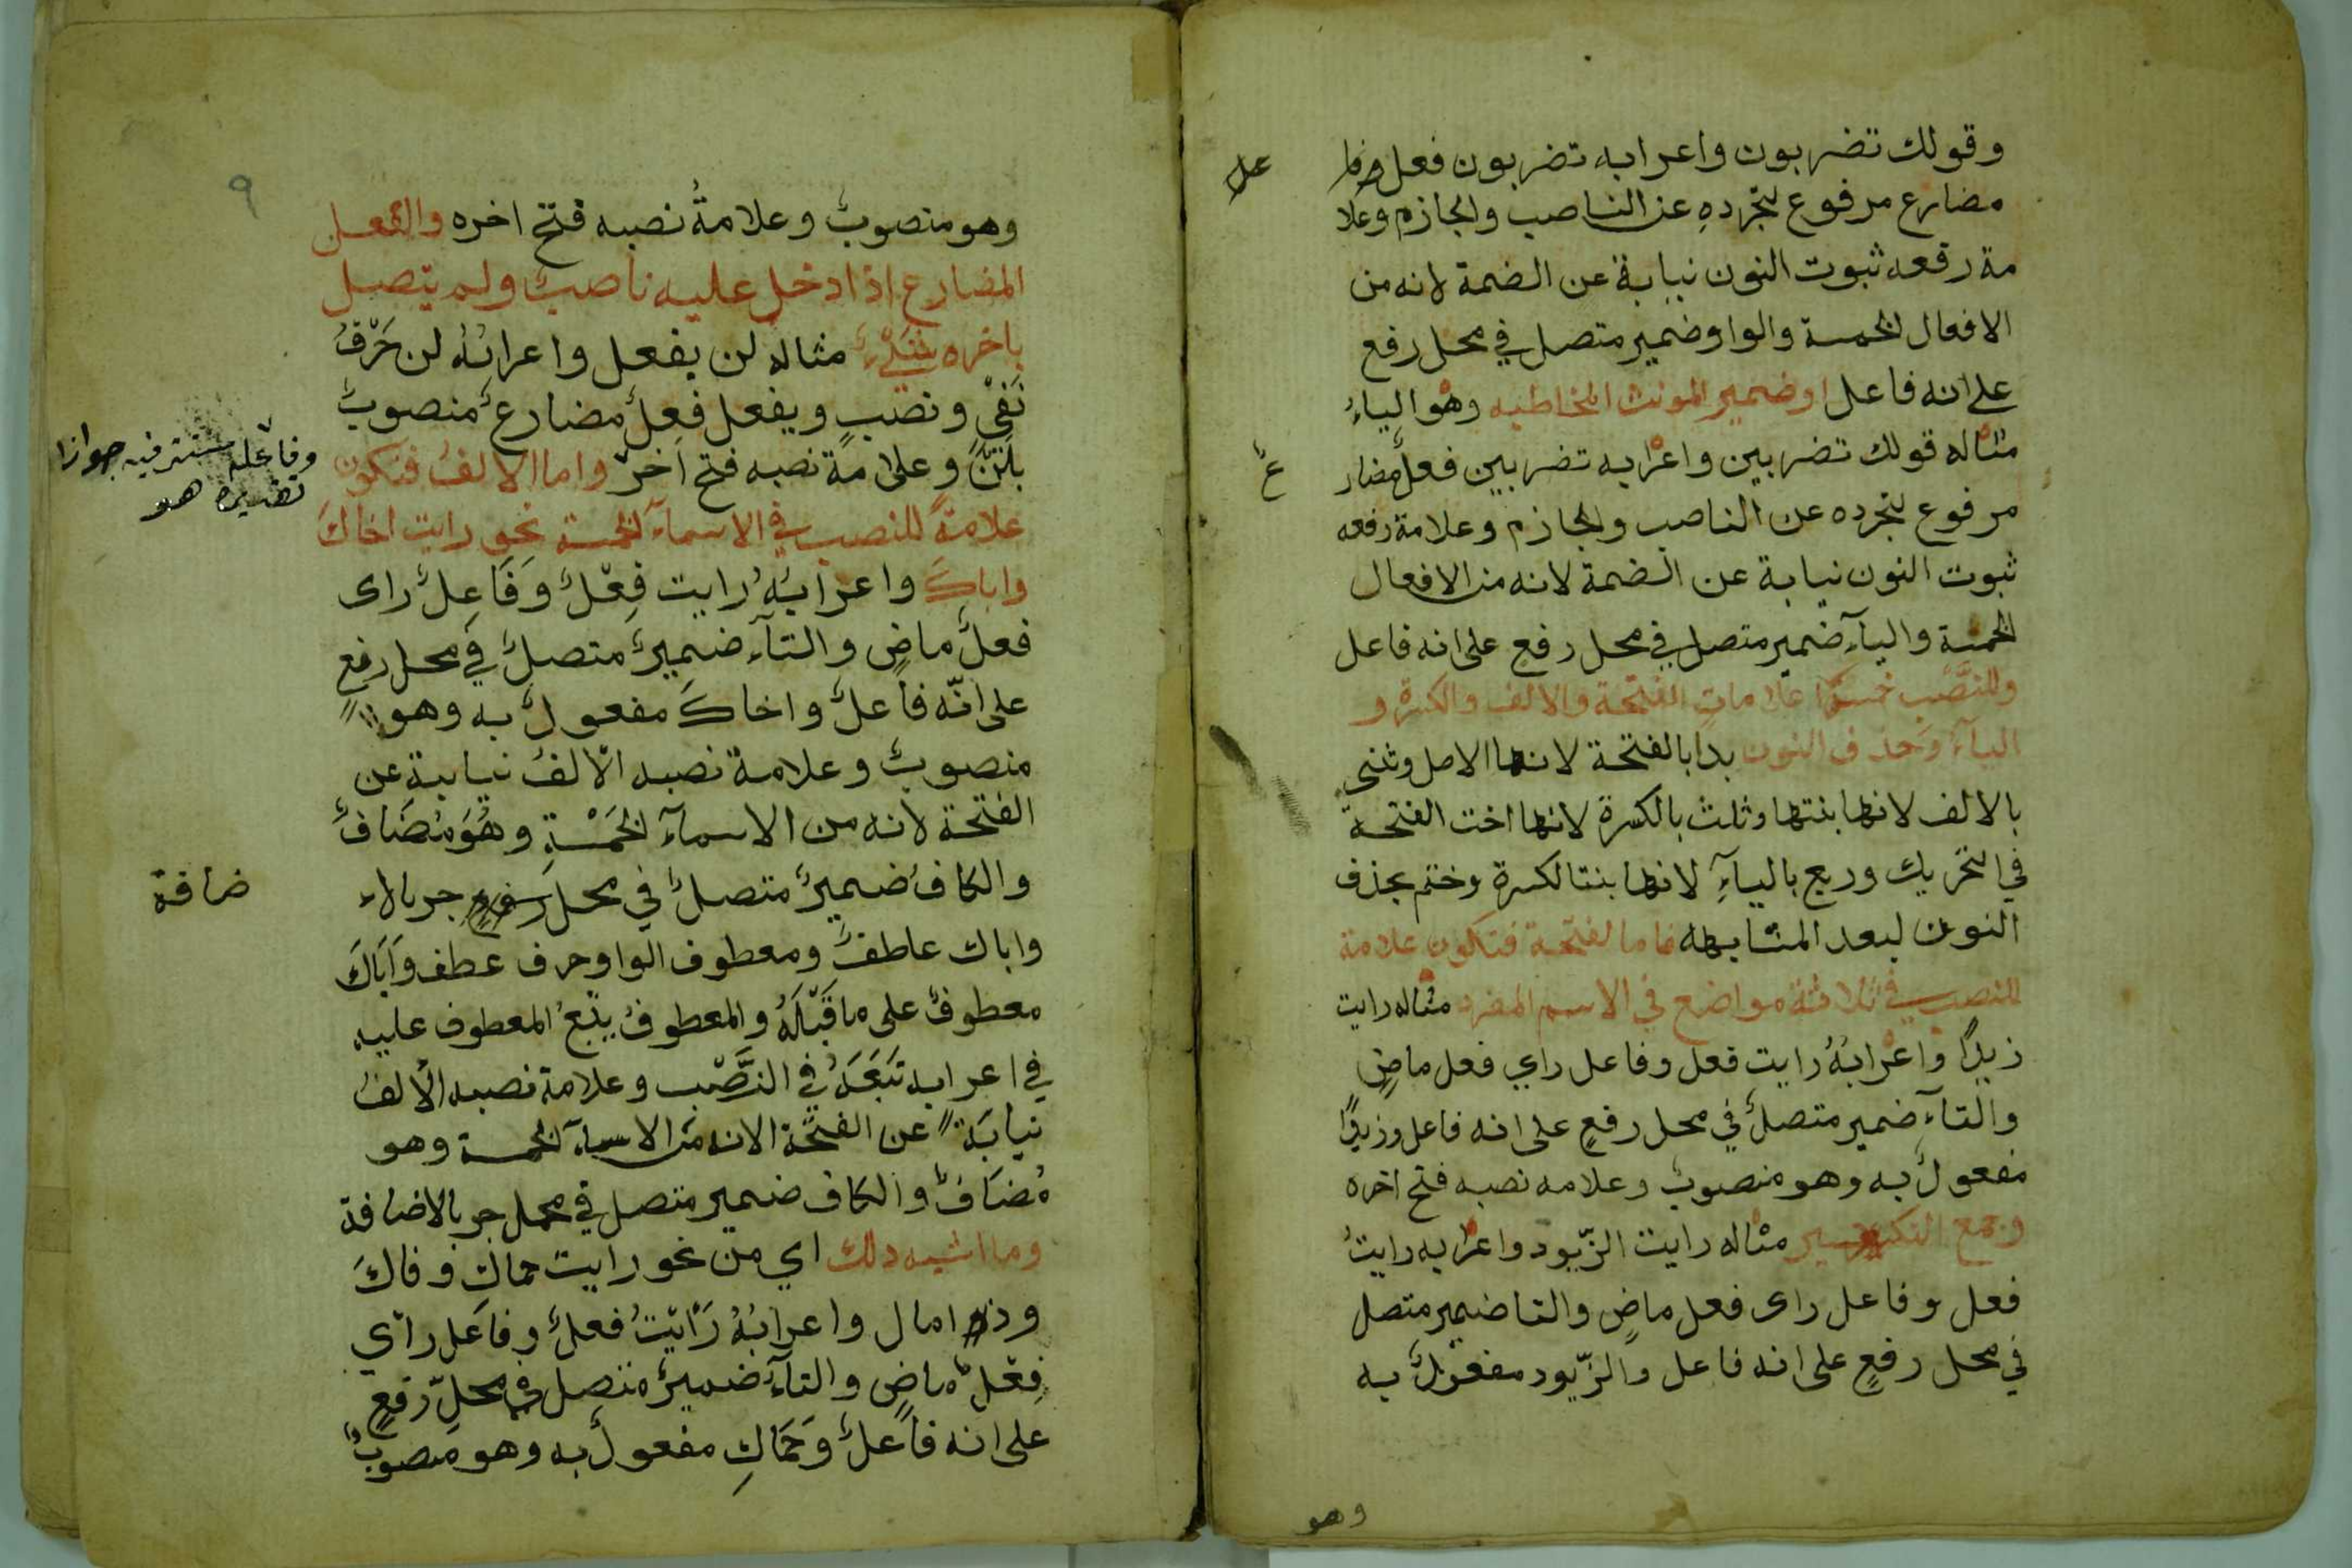 وقولك تضربون واعرابه تضربون فعل وفا
عل
مضارع مرفوع لتجردهِ عن الناصب والجازم وعلا
مة رفعه ثبوت النون نيابة عن الضمة لانه من
الافعال الخمسة والواو ضمير متصل في محل رفع
على انه فاعل او ضمير المونث المخاطبه وهو الياءُ
مثاله قولك تضربين واعرابه تضربين فعلٌ مضار
ع
مرفوع لتجرده عن الناصب والجازم وعلامة رفعه
ثبوت النون نيابة عن الضمة لانه من الافعال
الخمسة واليآء ضمير متصل في محل رفع على انه فاعل
وللنَّصْب خمس علامات الفتحة والالف والكسرة و
اليآء وحذف النون بدا بالفتحة لانها الاصل وثنى
بالالف لانها بنتها وثلث بالكسرة لانها اخت الفتحة
في التحريك وربع باليآءِ لانها بنت الكسرة وختم بحذف
النون لبعد المشابهه فاما الفتحة فتكون علامة
للنصب في ثلاثة مواضع في الاسم المفرد مثاله رايت
زيدًا واعرابُهُ رايت فعل وفاعل راي فعل ماضٍ
والتآءِ ضمير متصلٌ في محل رفعٍ على انه فاعل وزيدًا
مفعولٌ به وهو منصوبٌ وعلامه نصبه فتح اخره
وجمع التكسير مثاله رايت الزّيود واعرابه رايتُ
فعل وفاعل راى فعل ماضٍ والتا ضمير متصل
في محل رفعٍ على انه فاعل والزّيود مفعولٌ به
وهو
٩
وهو منصوبٌ وعلامةُ نصبه فتح اخره والفعل
المضارع اذا دخل عليه ناصبٌ ولم يتصل
باخره شَيْءٌ مثاله لن يفعل واعرابُهُ لن حَرْفُ
نَفْيٍ ونصبٍ ويفعل فِعلٌ مضارعٌ منصوبٌ
بلَنْ وعلامة نصبه فتح اخره واما الالفُ فتكون
وفاعله مستتر فيه جوازا
تقديره هو
علامةً للنصب في الاسمآء الخمسة نحو رايت اخاكَ
واباكَ واعرابُهُ رايت فِعْلٌ وَفَاعِلٌ راى
فعلٌ ماضٍ والتآء ضميرٌ متصلٌ في محل رفعٍ
على انّه فاعلٌ واخاكَ مفعولٌ به وهو
منصوبٌ وعلامة نصبه الالفُ نيابة عن
الفتحة لانه من الاسمآء الخَمْسَةِ وهُوَ مُضَافٌ
والكافُ ضميرٌ متصلٌ في محل رفعٍ جر بالا
ضافة
واباك عاطفٌ ومعطوف الواو حرف عطف وَاَبَاكَ
معطوفٌ على ما قَبْلَهُ والمعطوفُ يتبعُ المعطوف عليه
في اعرابه تَبَعَهُ في النَّصْب وعلامة نصبه الالفُ
نيابَةً عن الفتحة الانه من الاسمآء الخمسة وهو
مُضَافٌ والكاف ضمير متصل في محل جر بالاضافة
وما اشبه ذلك اي من نحو رايت حماك وفاكَ
وذا مال واعرابُهُ رَاَيْتُ فعلٌ وفاعل راي
فِعْلٌ ماضٍ والتآءُ ضميرٌ متصل في محلِّ رفعٍ
على انه فاعلٌ وَحَمَاكِ مفعولٌ به وهو منصوبٌ